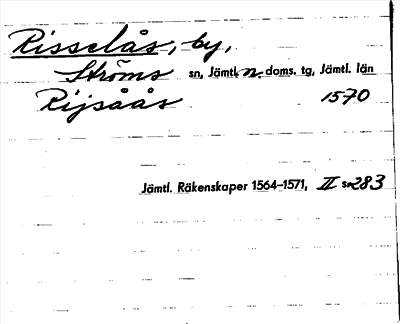 Risselås, by,
Ströms sn, Jämtl. n. doms. tg, Jämtl. län
Rijsåås 1570
Jämtl. Räkenskaper 1564-1571, II s. 283